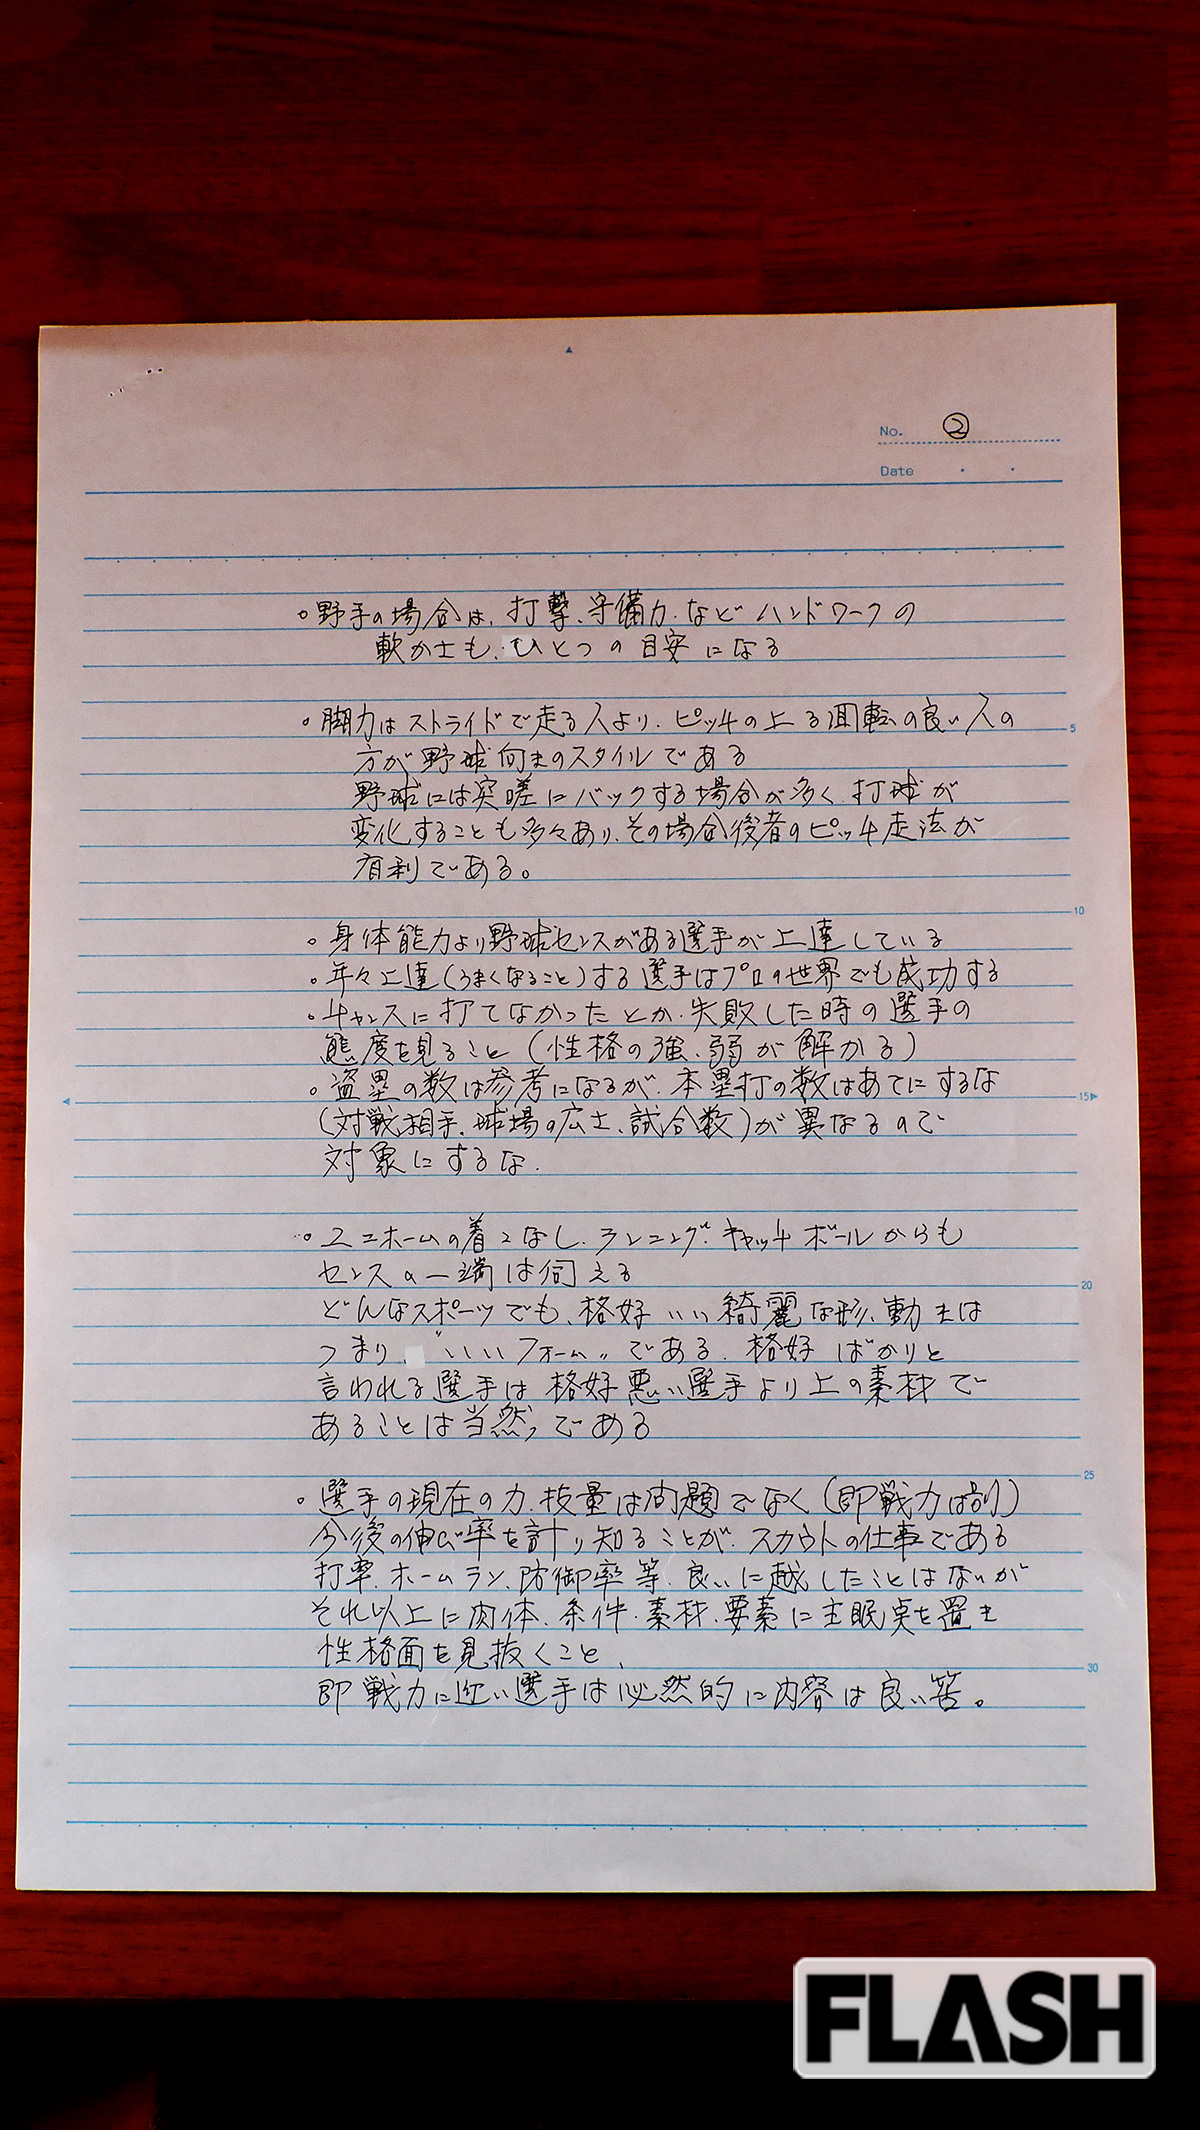 No. ②
Date
。野手の場合は、打撃、守備力、などハンドワークの
軟かさも、ひとつの目安になる
・脚力はストライドで走る人より、ピッチの上る回転の良い人の
方が野球向きのスタイルである
野球には突嗟にバックする場合が多く、打球が
変化することも多々あり、その場合後者のピッチ走法が
有利である。
。身体能力より野球センスがある選手が上達している
・年々上達(うまくなること)する選手はプロの世界でも成功する
・チャンスに打てなかったとか、失敗した時の選手の
態度を見ること(性格の強、弱が解かる)
・盗塁の数は参考になるが、本塁打の数はあてにするな
(対戦相手、球場の広さ、試合数)が異なるので
対象にするな.
。ユニホームの着こなし、ランニング、キャッチボールからも
センスの一端は伺える
どんなスポーツでも、格好いい綺麗な形、動きは
つまり、"いいフォーム〃である、格好ばかりと
言われる選手は格好悪い選手より上の素材で
あることは当然、である
。選手の現在の力、技量は問題でなく(即戦力は別)
今後の伸び率を計り知ることが、スカウトの仕事である
打率、ホームラン、防御率等、良いに越したことはないが
それ以上に肉体、条件、素材、要素に主眠点を置き
性格面を見抜くこと、
即戦力に近い選手は必然的に内容は良い筈。
5
10
15
20
25
30
FLASH